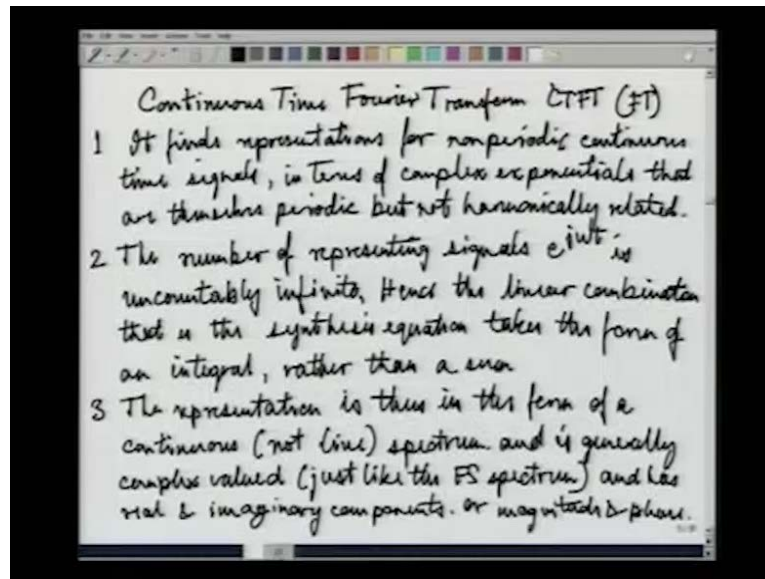 Continuous Time Fourier Transform CTFT (FT)
1 It finds representations for nonperiodic continuous
time signals, in terms of complex exponentials that
are themselves periodic but not harmonically related.
2 The number of representing signals e^jwt is
uncountably infinite, Hence the linear combination
that is the synthesis equation takes the form of
an integral, rather than a sum
3 The representation is thus in the form of a
continuous (not line) spectrum and is generally
complex valued (just like the FS spectrum) and has
real & imaginary components. or magnitude & phase.